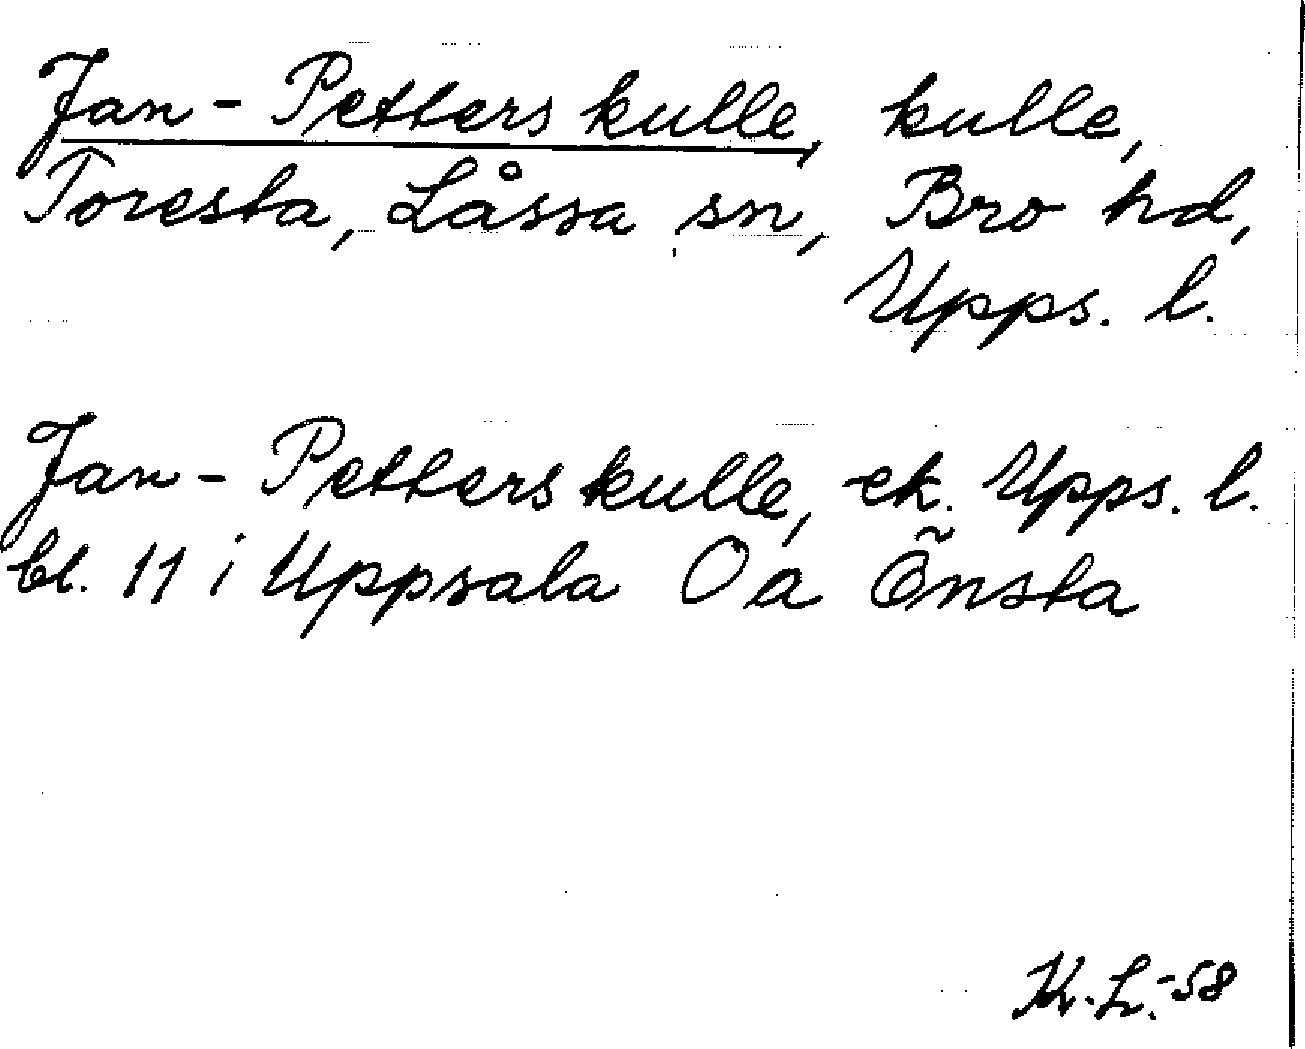 Jan-Petters kulle, kulle,
Toresta, Låssa sn, Bro hd,
Upps. l.
Jan-Petters kulle, ek. Upps. l.
bl. 11 i Uppsala O a Önsta
K.L.-58